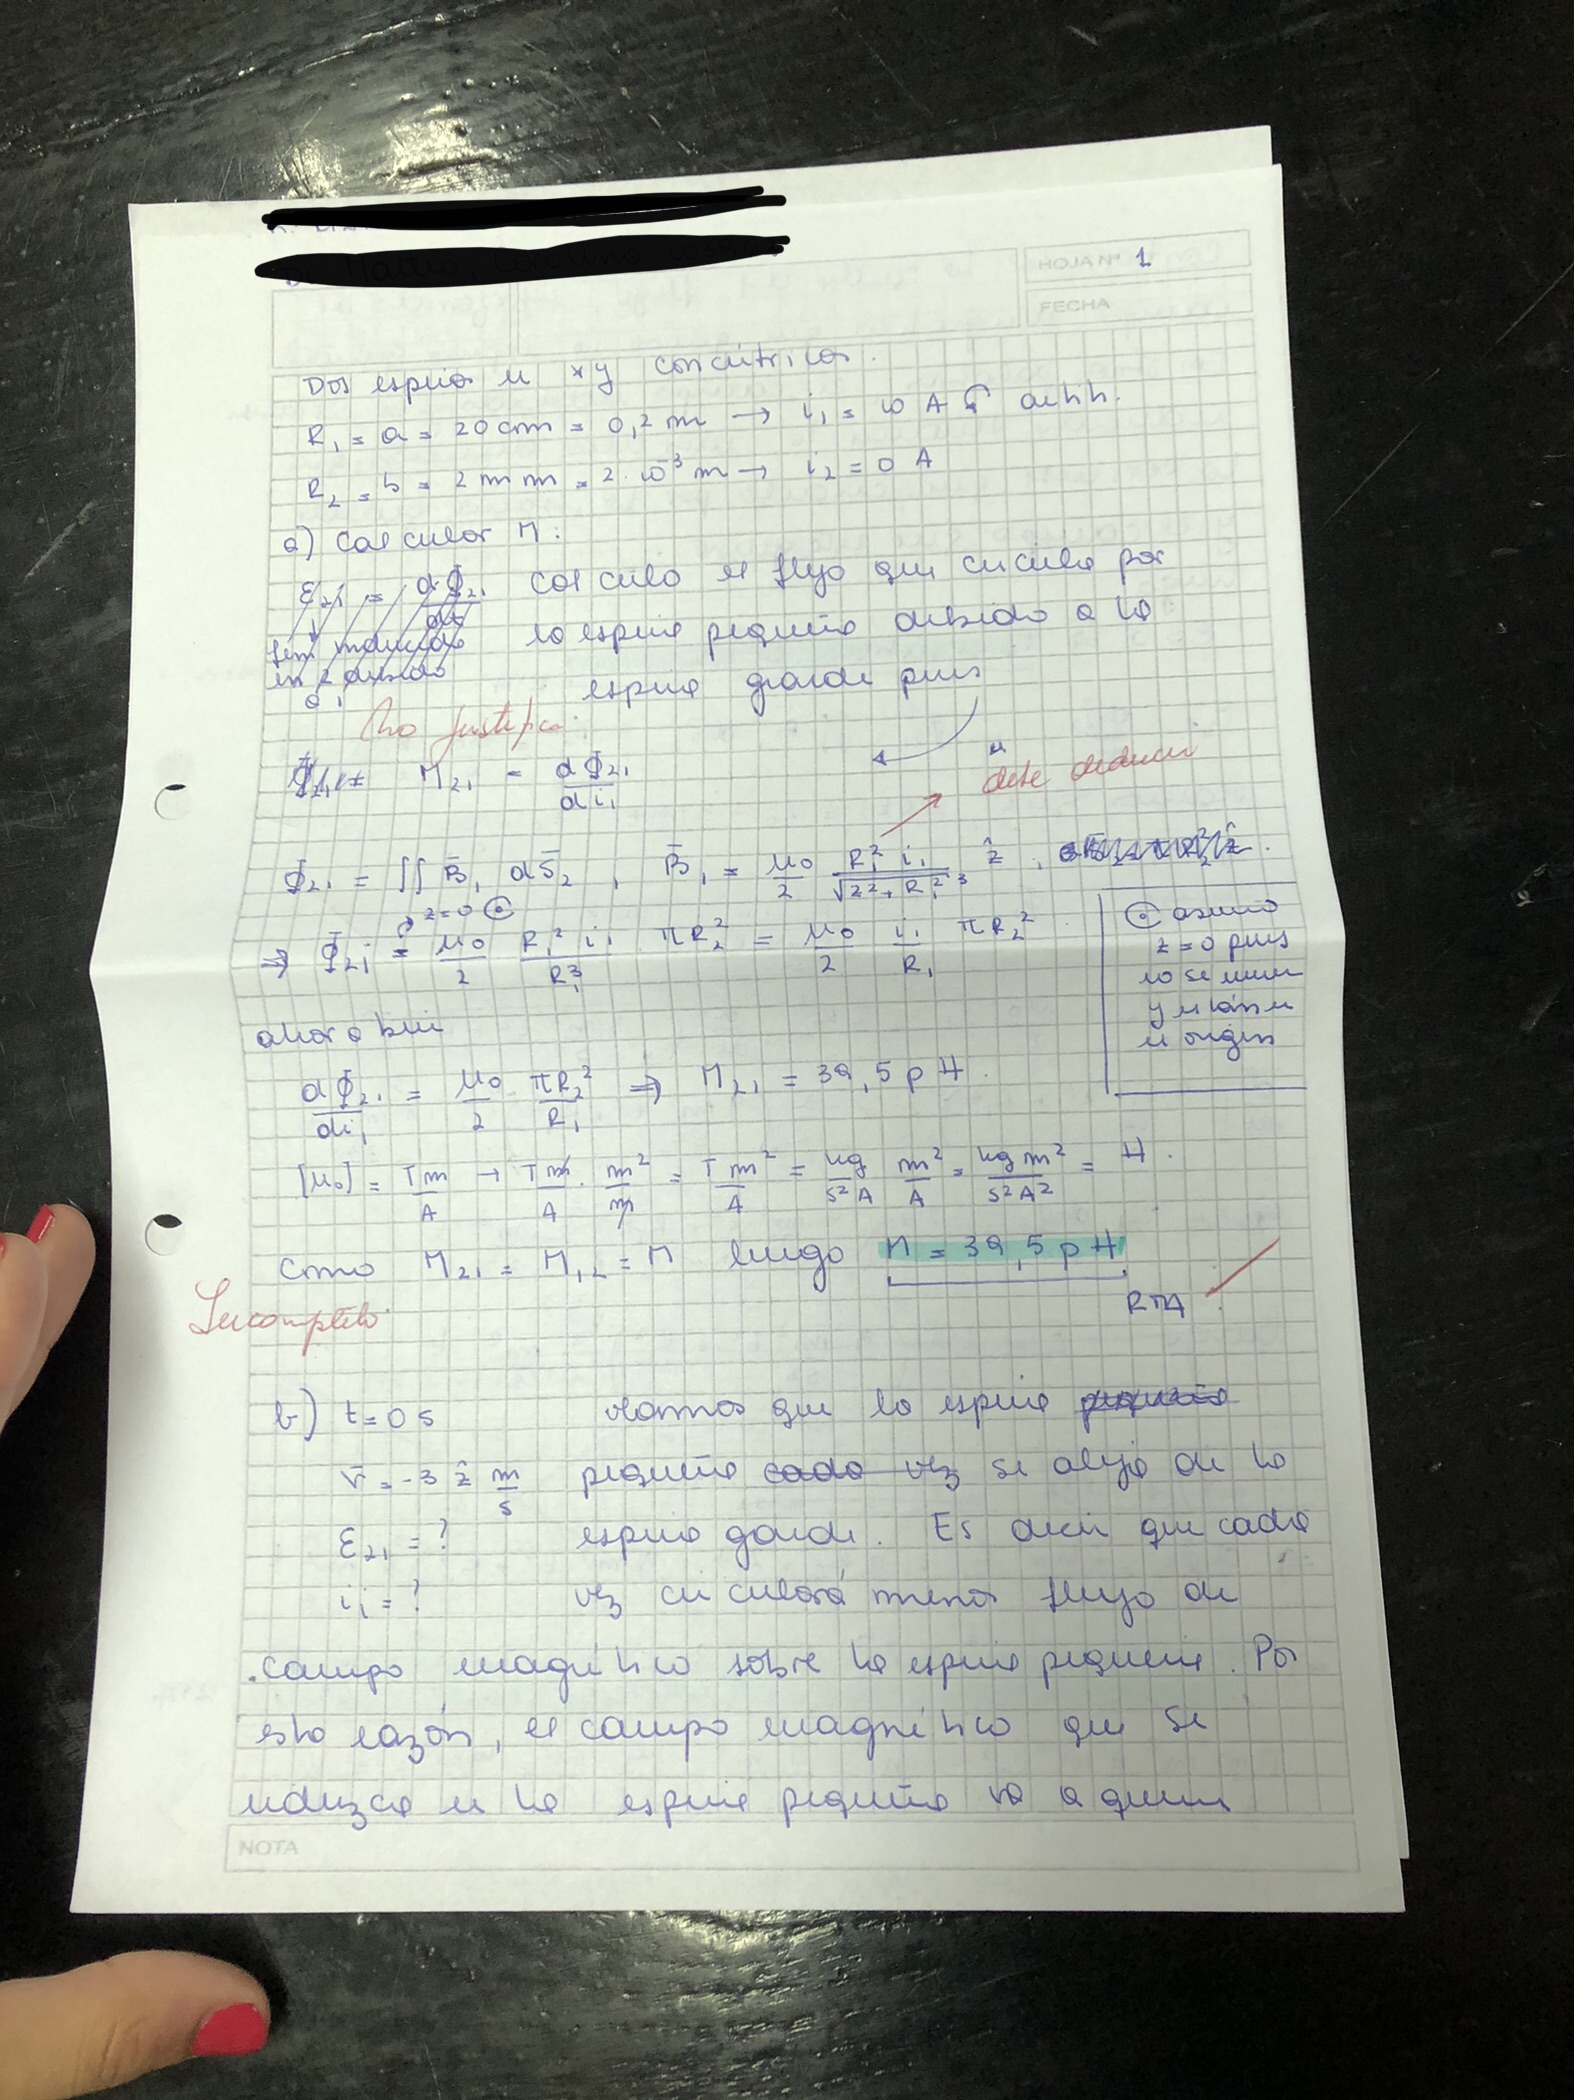 HOJA Nº 1
FECHA
Dos espiras en xy concéntricas.
R₁ = a = 20 cm = 0,2 m → i₁ = 10 A ↺ antih.
R₂ = b = 2 mm = 2·10⁻³ m → i₂ = 0 A
a) Calcular M:
ε₂₁ = dΦ₂₁/dt calculo el flujo que circula por
fem inducida la espira pequeña debido a la
en 2 debido a 1 espira grande pues
No justifica.
M₂₁ = dΦ₂₁/di₁
debe deducir
Φ₂₁ = ∬ B̄₁ dS̄₂ , B̄₁ = μ₀/2 R₁² i₁/√(z² + R₁²)³ ẑ ,
z=0 ⊙
⇒ Φ₂₁ = μ₀/2 R₁² i₁/R₁³ πR₂² = μ₀/2 i₁/R₁ πR₂²
⊙ asumo
z=0 pues
no se mueven
y están en
el origen
ahora bien
dΦ₂₁/di₁ = μ₀/2 πR₂²/R₁ ⇒ M₂₁ = 39,5 pH.
[μ₀] = Tm/A → Tm/A · m²/m = T m²/A = kg/s²A m²/A = kg m²/s²A² = H.
Como M₂₁ = M₁₂ = M luego M = 39,5 pH
RTA
Incompleto
b) t=0 s veamos que la espira pequeña
v̄ = -3 ẑ m/s pequeña cada vez se aleja de la
ε₂₁ = ? espira grande. Es decir que cada
iᵢ = ? vez circulará menos flujo de
campo magnético sobre la espira pequeña. Por
esta razón, el campo magnético que se
induzca en la espira pequeña va a querer
NOTA